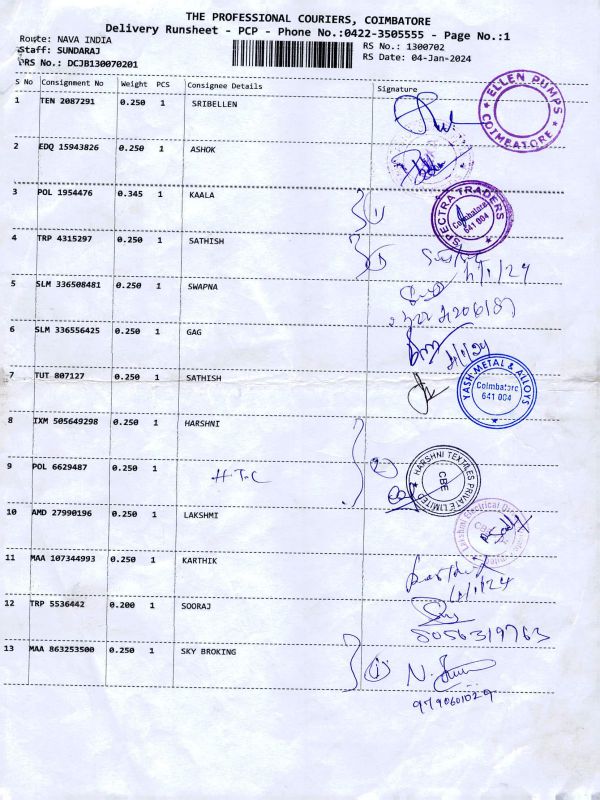 THE PROFESSIONAL COURIERS, COIMBATORE
Delivery Runsheet - PCP - Phone No.:0422-3505555 - Page No.:1
Route: NAVA INDIA
RS No.: 1300702
Staff: SUNDARAJ
RS Date: 04-Jan-2024
DRS No.: DCJB130070201
S No Consignment No Weight PCS Consignee Details Signature
1 TEN 2087291 0.250 1 SRIBELLEN
ELLEN PUMPS COIMBATORE
2 EDQ 15943826 0.250 1 ASHOK
3 POL 1954476 0.345 1 KAALA
1
SPECTRA TRADERS Coimbatore 641 004
4 TRP 4315297 0.250 1 SATHISH
4/1/24
5 SLM 336508481 0.250 1 SWAPNA
6 SLM 336556425 0.250 1 GAG
4/1/24
7 TUT 807127 0.250 1 SATHISH
YASH METAL & ALLOYS Coimbatore 641 004
8 IXM 505649298 0.250 1 HARSHNI
2
HARSHNI TEXTILES PRIVATE LIMITED CBE
9 POL 6629487 0.250 1
H.T.C
10 AMD 27990196 0.250 1 LAKSHMI
11 MAA 107344993 0.250 1 KARTHIK
Karthik
4/1/24
12 TRP 5536442 0.200 1 SOORAJ
8056319763
13 MAA 863253500 0.250 1 SKY BROKING
1
9790601029